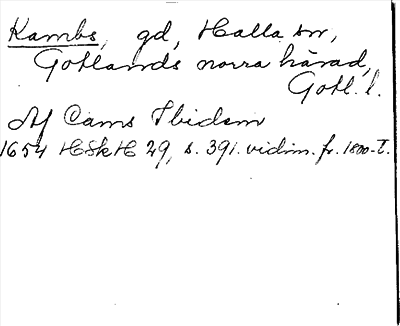 Kambs, gd, Halla sn,
Gotlands norra härad,
Gotl. l.
Af Cams Ibidem
1654 HSkH 29, s. 391. vidim. fr. 1800-t.